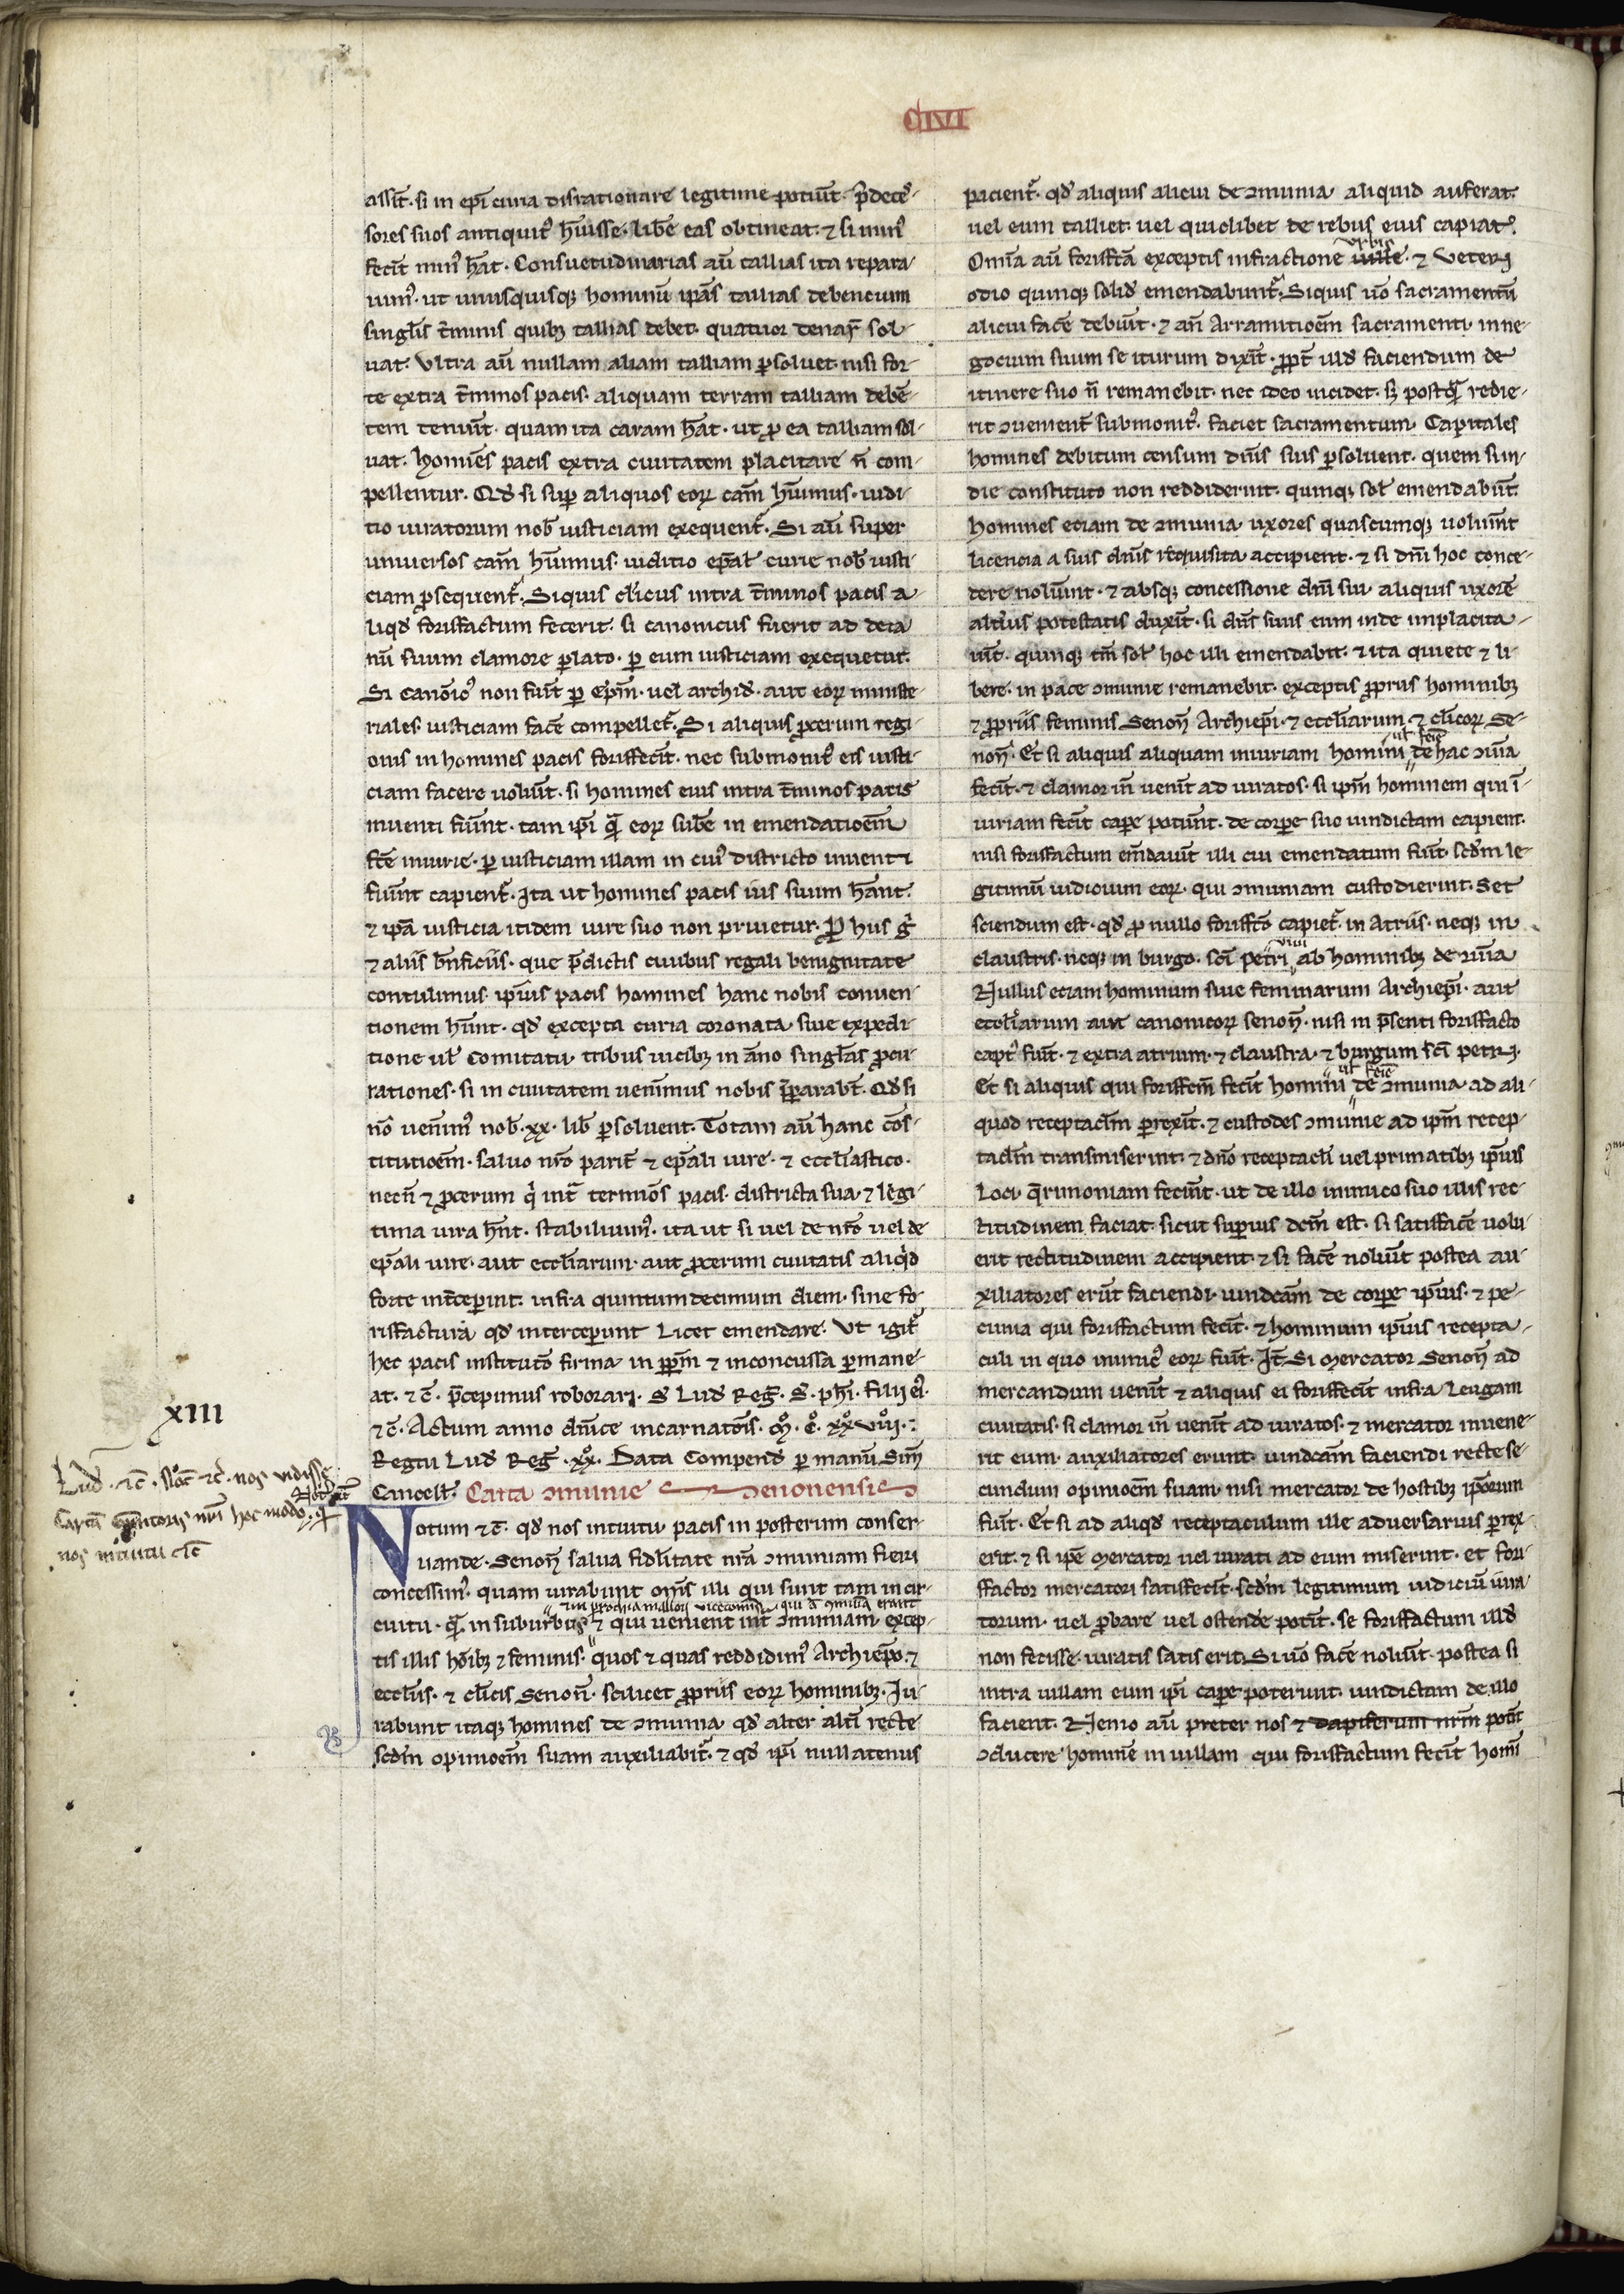 CIVI
assit̄. si in ep̄i curia disrationare legitime potuit̄. p̄deces-
sores suos antiquit᾽ h̄uisse. lib̄e eas obtineat. ⁊ si min᾽
fecit̄ min᾽ h̄at. Consuetudinarias au̅ tallias ita repara-
uim᾽. ut unusquisq; hominu̅ ip̄as tallias debencium
singl̄is t̄minis quib; tallias debet. quatuor denar̄ sol-
uat. Vltra au̅ nullam aliam talliam p̄soluet. nisi for-
te extra t̄minos pacis. aliquam terram talliam debe̅-
tem tenuit̄. quam ita caram h̄at. ut p̄ ea talliam sol-
uat. homines pacis extra ciuitatem placitare n̄ com-
pellentur. Qd̄ si sup aliquos eoꝝ cam̄ h̄uimus. iudi-
tio iuratorum nob̄ iusticiam exequent᾽. Si au̅ super
uniuersos cam̄ h̄uimus. iuditio ep̄al̄ curie nob̄ iusti-
ciam p̄sequent᾽. Siquis cl̄icus intra t̄minos pacis a-
liqd̄ forisfactum fecerit. si canonicus fuerit ad deca-
nu̅ suum clamore p̄lato. p̄ eum iusticiam exequetur.
Si canōic᾽ non fuit̄ p̄ ep̄m. uel archid̄. aut eoꝝ ministe-
riales. iusticiam fac̄e compellet᾽. Si aliquis p̄cerum regi-
onis in homines pacis forisfecit̄. nec submonit᾽ eis iusti-
ciam facere uoluit̄. si homines eius intra t̄minos pacis
inuenti fu̅int. tam ip̄i q̄ eoꝝ sub̄e in emendatioe̅m
fc̄e iniurie. p̄ iusticiam illam in cui᾽ districto inuenti
fu̅int capient᾽. Ita ut homines pacis ius suum h̄ant.
⁊ ip̄a iusticia itidem iure suo non priuetur. P̄ hiis g̊
⁊ aliis b̄nficiis. que p̄dictis ciuibus regali benignitate
contulimus. ip̄ius pacis homines hanc nobis conuen-
tionem h̄unt. qd̄ excepta curia coronata siue expedi-
tione ul̄ comitatu. tribus uicib; in a̅no singl̄as p̄cu-
rationes. si in ciuitatem uenim̄us nobis p̄parabt̄. Qd̄ si
no̅ uenim᾽ nob̄ .xx. lib̄ p̄soluent. Totam au̅ hanc co̅s-
titutioe̅m. saluo nr̄o parit̄ ⁊ ep̄ali iure. ⁊ eccl̄iastico.
necn̄ ⁊ p̄cerum q̊ int᾽ termin̄os pacis. districta sua ⁊ legi-
tima iura h̄nt. stabiliuim᾽. ita ut si uel de nr̄o uel de
ep̄ali iure. aut eccl̄iarum. aut p̄cerum ciuitatis aliq̊d
forte int̄cep̄int. infra quintumdecimum diem. sine fo-
risfactura qd̄ intercep̄unt licet emendare. Vt igit᾽
hec pacis instituto̅ firma in p̄pm̄ ⁊ inconcussa p̄mane-
at. ⁊ c̄. p̄cepimus roborari. S̄ Lud̄ Reg̅. S̄. ph̄i. filij ei᾽.
⁊ c̄. Actum anno dn̄ice incarnato̅is. M̊. C̊. xx̊ viij̊.
Regni Lud̄ Reg̅ .xx̊. Data Compend̄ p̄ manu̅ Sim̄
Cancell̄. Carta ɔmunie Senonensis
Notum ⁊ c̄. qd̄ nos intuitu pacis in posterum conser-
uande. Senon̄ salua fidl̄itate nr̄a ɔmuniam fieri
concessim᾽. quam iurabunt om̄s illi qui sunt tam in cir-
cuitu. q̄ in suburbiis ⁊ qui uenient int̄ ɔmuniam. excep-
tis illis hōib; ⁊ feminis. quos ⁊ quas reddidim᾽ Archiep̄o. ⁊
eccl̄iis. ⁊ cl̄icis Senon̄. scilicet p̄priis eoꝝ hominib;. Iu-
rabunt itaq; homines de ɔmunia. qd̄ alter alt̄i recte
scd̄m opinioe̅m suam auxiliabit᾽. ⁊ qd̄ ip̄i nullatenus
xiii
Lud̄. ⁊ c̄. Not̄ ⁊ c̄. nos uidisse
cartā genitoris nr̄i hoc modo.
Not̄
nos intuitu ⁊ c̄
pacient᾽. qd̄ aliquis alicui de ɔmunia aliquid auferat.
uel eum talliet. uel quidlibet de rebus eius capiat.
urbis
Omīa au̅ forisf̄ca exceptis infractione uille. ⁊ ueteri
odio quinq; solid̄ emendabunt᾽. Siquis u̅o sacramentu̅
alicui fac̄e debuit̄. ⁊ an̄ Arramitioe̅m sacramenti in ne-
gocium suum se iturum dixit̄. p̄pt̄ illd̄ faciendum de
itinere suo n̄ remanebit. nec ideo incidet. s; postq̄ redie-
rit ɔuenient̄ submonit᾽. faciet sacramentum. Capitales
homines debitum censum dn̄is suis p̄soluent. quem si in
die constituto non reddiderint. quinq; sol̄ emendabu̅t.
homines eciam de ɔmunia uxores quascumq; uoluint̄
licencia a suis dn̄is requisita accipient. ⁊ si dn̄i hoc conce-
dere noluint̄. ⁊ absq; concessione dn̄i sui aliquis uxore̅
alt̄ius potestatis duxit̄. si dn̄s suus eum inde implacita-
uit̄. quinq; tm̄ sol̄ hoc illi emendabit. ⁊ ita quiete ⁊ li-
bere. in pace ɔmunie remanebit. exceptis p̄priis hominib;
⁊ p̄priis feminis Senon̄ Archiep̄i. ⁊ eccl̄iarum ⁊ cl̄icoꝝ Se-
ul̄ feīe
non̄. Et si aliquis aliquam iniuriam homini de hac ɔm̄ia
fecit̄. ⁊ clamor in̄ uenit̄ ad iuratos. si ip̄m hominem qui i̅-
iuriam fecit̄ cape potuint̄. de corpe suo uindictam capient.
nisi forisfactum em̄dauit̄ illi cui emendatum fuit̄. scd̄m le-
gitimu̅ iudicium eoꝝ. qui ɔmuniam custodierint. Set
sciendum est. qd̄ p̄ nullo forisfc̄o capiet᾽. in Atriis. neq; in
uiui
claustris. neq; in burgo. sc̄i petri ab hominib; de ɔm̄ia
Nullus eciam hominum siue feminarum Archiep̄i. aut
eccl̄iarum aut canonicoꝝ senon̄. nisi in p̄senti forisfacto
capt᾽ fuit̄. ⁊ extra atrium. ⁊ claustra. ⁊ burgum sc̄i petri.
ul̄ feīe
Et si aliquis qui forisfcm̄ fecit̄ homini de ɔmunia ad ali-
quod receptacl̄m p̄rexit̄. ⁊ custodes ɔmunie ad ip̄m recep-
tacl̄m transmiserint. ⁊ dn̄o receptacl̄i uel primatib; ip̄ius
Loci q̄rimoniam fecint̄. ut de illo inimico suo illis rec-
titudinem faciat. sicut sup̄ius dcm̄ est. si satisfac̄e uolu-
erit rectitudinem accipient. ⁊ si fac̄e noluit̄ postea au-
xiliatores eru̅t faciendi. uindcam̄ de corpe ip̄ius. ⁊ pe-
cunia qui forisfactum fecit̄. ⁊ hominum ip̄ius recepta-
culi in quo inimic᾽ eoꝝ fuit̄. It̄. Si mercator Senon̄ ad
mercandum uenit̄ ⁊ aliquis ei forisfecit̄ infra leugam
ciuitatis. si clamor in̄ uenit̄ ad iuratos. ⁊ mercator inuene-
rit eum. auxiliatores erunt. uindcam̄ faciendi recte se-
cundum opinioe̅m suam. nisi mercator de hostib; ip̄orum
fuit̄. Et si ad aliqd̄ receptaculum ille aduersarius p̄rex-
erit. ⁊ si ip̄e mercator uel iurati ad eum miserint. et fori-
ffactor mercatori satisfecit̄. scd̄m legitimum iudiciu̅ iura-
torum. uel p̄bare uel ostende potit̄. se forisfactum illd̄
non fecisse. iuratis satis erit. Si u̅o fac̄e noluit̄. postea si
intra uillam eum ip̄i cape poterunt. uindictam de illo
facient. Nemo au̅ preter nos ⁊ dapiferum nr̄m potit̄
ɔducere homine̅ in uillam qui forisfactum fecit̄ homi̅